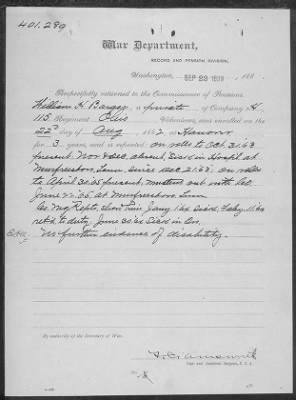 401.289
War Department,
RECORD AND PENSION DIVISION,
Washington, SEP 23 1889, 188 .
Respectfully returned to the Commissioner of Pensions
William H. , a private, of Company H
115 Regiment Ohio Volunteers, was enrolled on the
22d day of Aug, 1862, at
for 3 years, and is reported: on rolls to Oct 31 63
present, Nov & Dec absent, Sick in Hospl at
Murfreesboro, Tenn. since Dec 21 63. on rolls
to April 30 65 present, musters out with Co.
June 22, 65 at Murfreesboro, Tenn
Co. Mg Repts. show him Jany 1 64 Sick,
retd to duty. June 30 64 Sick in
No further evidence of disability.
By authority of the Secretary of War.
Capt. and Assistant Surgeon, U. S. A.